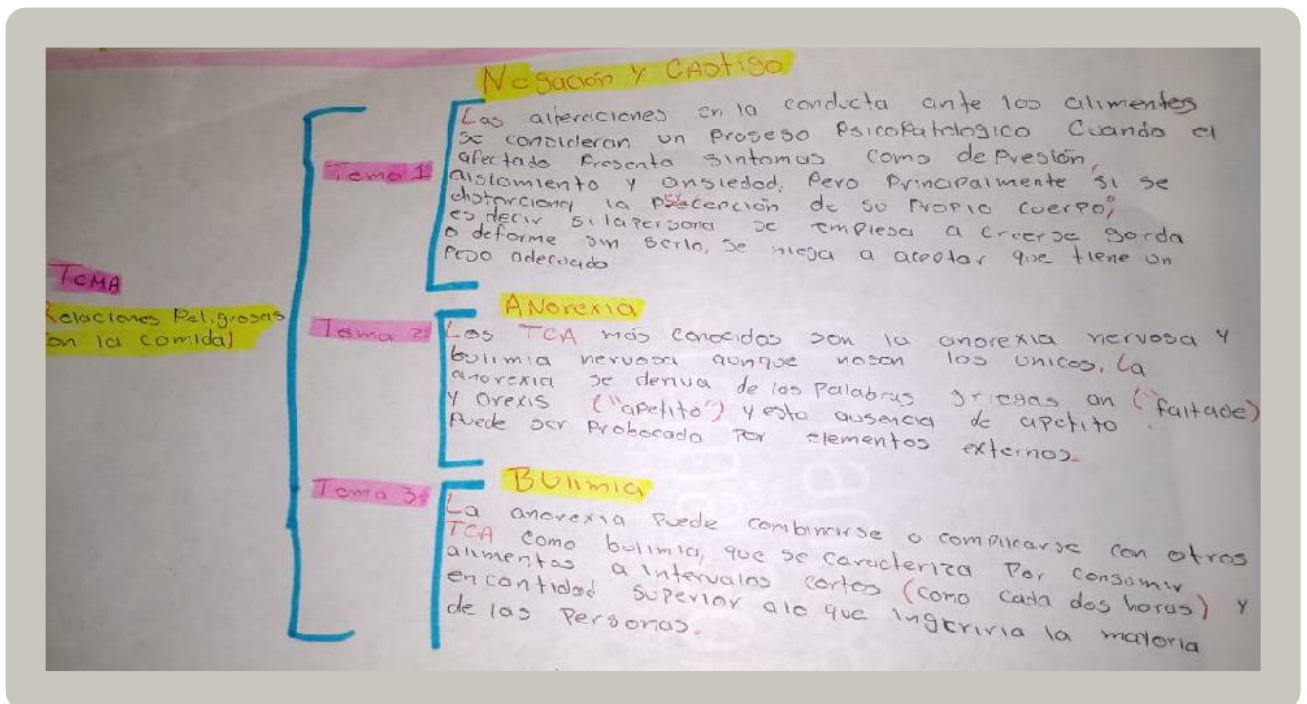 TEMA
Relaciones Peligrosas
on la comida)
Tema 1
Negación y CAstigo
Las alteraciones en la conducta ante los alimentos
se concideran un Proseso Psicopatologico Cuando el
afectado Presenta sintomas como depresión,
aislamiento y ansiedad, Pero Principalmente si se
distorciona la percepción de su Propio cuerpo,
es decir si la persona se empiesa a creerse gorda
o deforme sin serlo, se niega a aceptar que tiene un
peso adecuado
Tema 2
ANorexia
Los TCA más conocidos son la anorexia nervosa y
bulimia nervosa aunque noson los unicos. La
anorexia se deriva de las Palabras griegas an ("faltade)
y orexis ("apetito") y esta ausencia de apetito
Puede ser Probocada Por elementos externos.
Tema 3
BUlimia
La anorexia Puede combinarse o complicarse con otros
TCA como bulimia, que se caracteriza Por consumir
alimentos a intervalos cortos (como cada dos horas) y
en cantidad superior alo que ingeriria la mayoria
de las Personas.